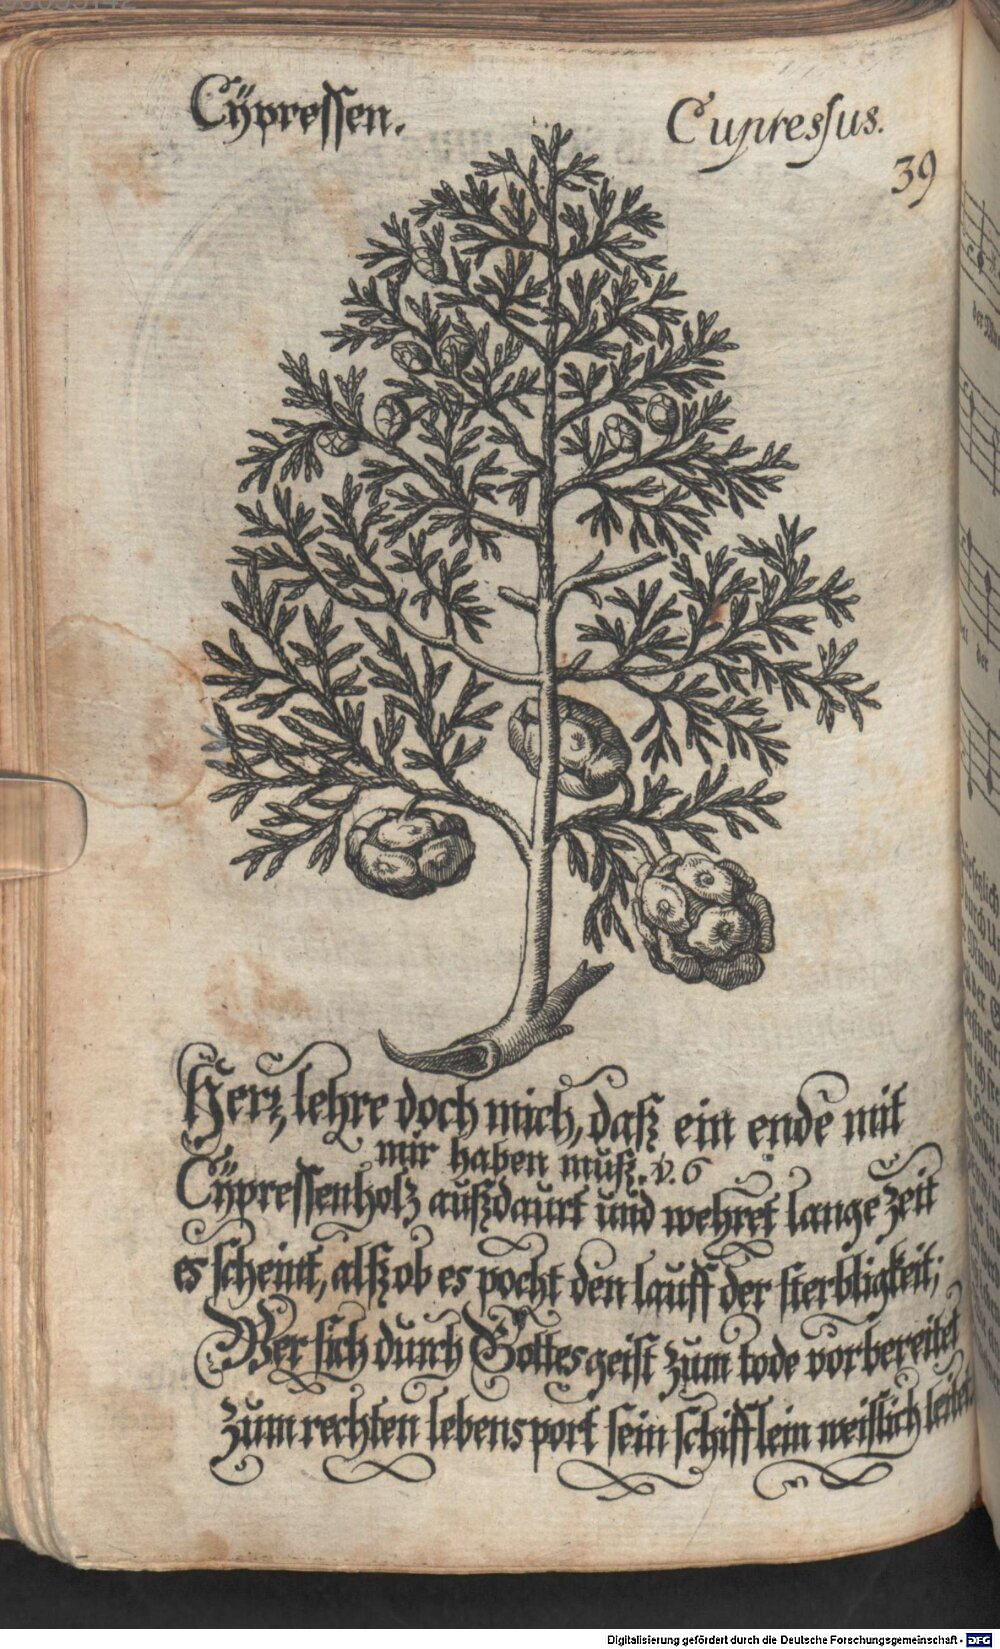 Cÿpressen.
Cupressus.
39
Herz, lehre doch mich, daß ein ende mit
mir haben muß. v. 6
Cÿpressenholz außdaurt und wehret lange zeit
es scheint, alß ob es pocht den lauff der sterbligkeit;
Wer sich durch Gottes geist zum tode vorbereitet
zum rechten lebens port sein schifflein weislich leitet.
der
Digitalisierung gefördert durch die Deutsche Forschungsgemeinschaft - DFG